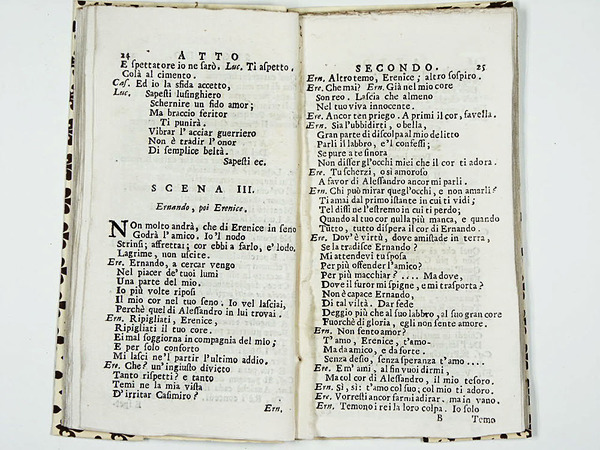 24 ATTO
E spettatore io ne sarò. Luc. Ti aspetto.
Colà al cimento.
Cas. Ed io la sfida accetto,
Luc. Sapesti lusinghiero
Schernire un fido amor;
Ma braccio feritor
Ti punirà.
Vibrar l'acciar guerriero
Non è tradir l'onor
Di semplice beltà.
Sapesti ec.
SCENA III.
Ernando, poi Erenice.
NOn molto andrà, che di Erenice in seno
Godrà l'amico. Io'l nodo
Strinsi; affrettai; cor ebbi a farlo, e'lodo.
Lagrime, non uscite.
Ere. Ernando, a cercar vengo
Nel piacer de'tuoi lumi
Una parte del mio.
Io più volte riposi
Il mio cor nel tuo seno. Io vel lasciai,
Perchè quel di Alessandro in lui trovai.
Ern. Ripigliati, Erenice,
Ripigliati il tuo core.
Ei mal soggiorna in compagnia del mio;
E per solo conforto
Mi lasci ne'l partir l'ultimo addio.
Ere. Che? un'ingiusto divieto
Tanto rispetti? e tanto
Temi ne la mia vista
D'irritar Casimiro?
Ern.
SECONDO. 25
Ern. Altro temo, Erenice; altro sospiro.
Ere. Che mai? Ern. Già nel mio core
Son reo. Lascia che almeno
Nel tuo viva innocente.
Ere. Ancor ten priego. A primi il cor, favella.
Ern. Sia l'ubbidirti, o bella,
Gran parte di discolpa al mio delitto
Parli il labbro, e'l confessi;
Se pure a te sinora
Non disser gl'occhi miei che il cor ti adora.
Ere. Tu scherzi, o sì amoroso
A favor di Alessandro ancor mi parli.
Ern. Chi può mirar quegl'occhi, e non amarli?
Ti amai dal primo istante in cui ti vidi;
Tel dissi ne l'estremo in cui ti perdo;
Quando al tuo cor nulla più manca, e quando
Tutto, tutto dispera il cor di Ernando.
Ere. Dov'è virtù, dove amistade in terra,
Se la tradisce Ernando?
Mi attendevi tu sposa
Per più offender l'amico?
Per più macchiar?.... Ma dove,
Dove il furor mi spigne, e mi trasporta?
Non è capace Ernando,
Di tal viltà. Dar fede
Deggio più che al suo labbro, al suo gran core
Fuorchè di gloria, egli non sente amore.
Ern. Non sento amor?
T'amo, Erenice, t'amo-
Ma da amico, e da forte.
Senza desìo, senza speranza t'amo....
Ere. Em' ami, al fin vuoi dirmi,
Ma col cor di Alessandro, il mio tesoro.
Ern. Sì, sì: t'amo col suo; col mio ti adoro.
Ere. Vorresti ancor farmi adirar. ma in vano.
Ern. Temono i rei la loro colpa. Io solo
B Temo